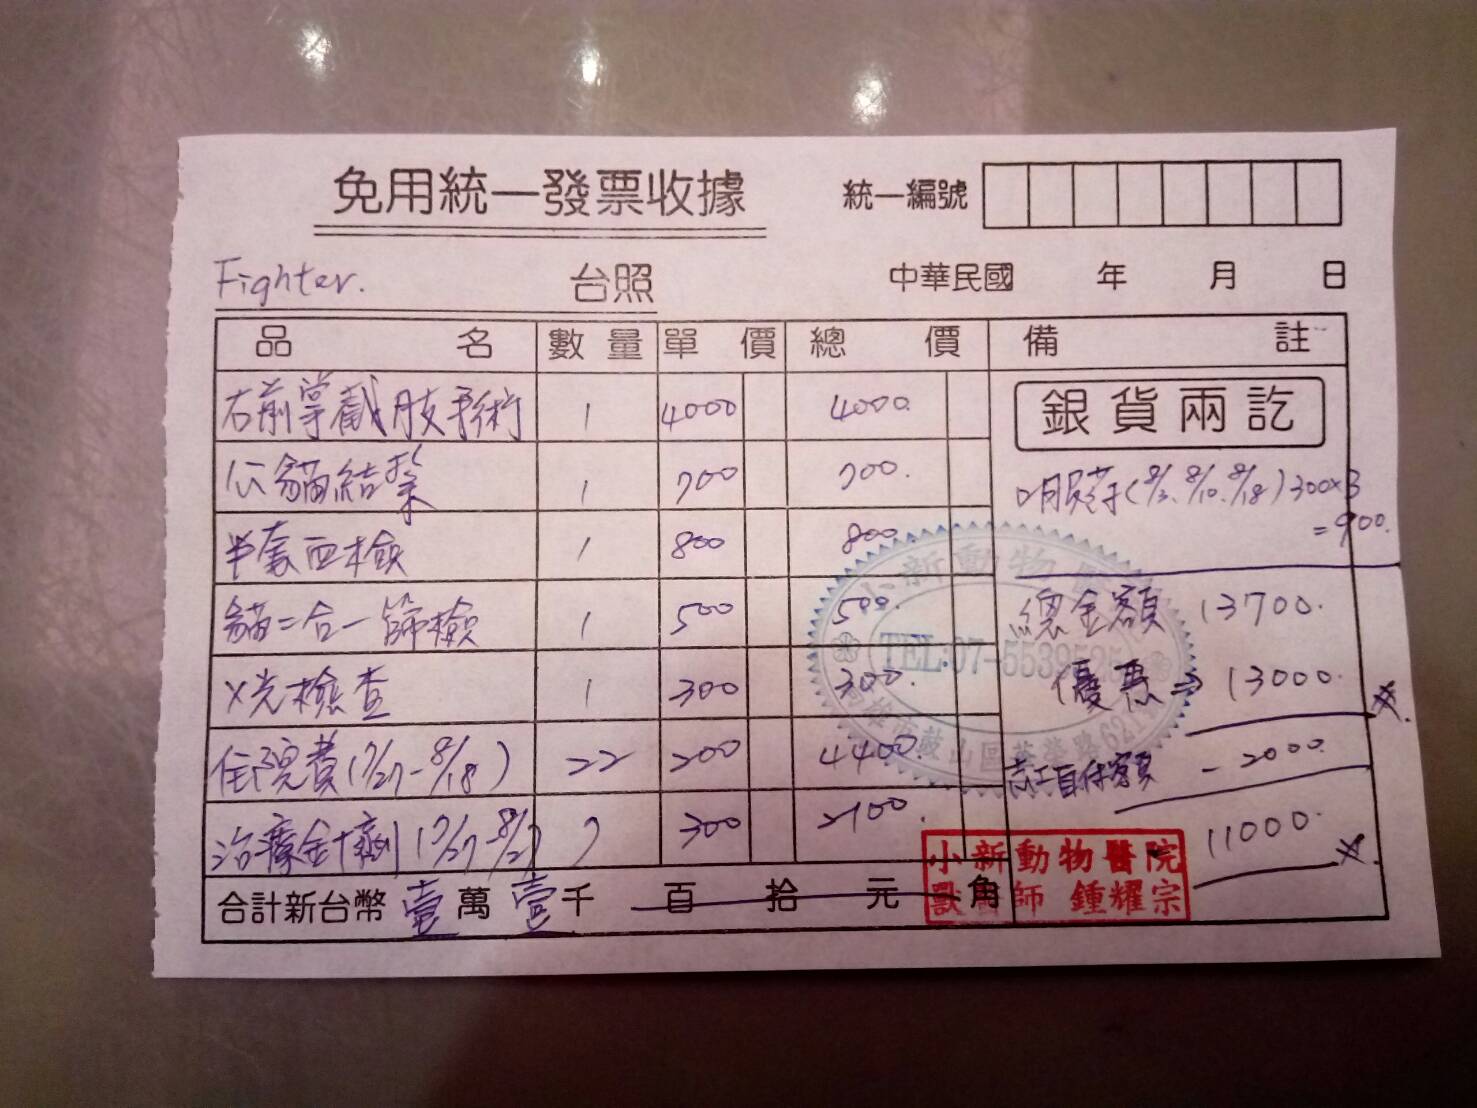 免用統一發票收據
統一編號
Fighter. 台照
中華民國 年 月 日
品名 數量 單價 總價 備註
右前掌截肢手術 1 4000 4000.
公貓結紮 1 700 700.
半套血檢 1 800 800.
貓二合一篩檢 1 500 500.
X光檢查 1 300 300.
住院費(7/27-8/18) 22 200 4400.
治療針劑(7/27-8/2) 7 300 2100.
合計新台幣 壹 萬 壹 千 百 拾 元 角
銀貨兩訖
口服藥(8/3、8/10、8/18)300×3
=900.
總金額 13700.
優惠⇒ 13000.
自付額 -2000
11000.
小新動物醫
TEL:07-5539525
高雄市鼓山區
小新動物醫院
獸醫師 鍾耀宗